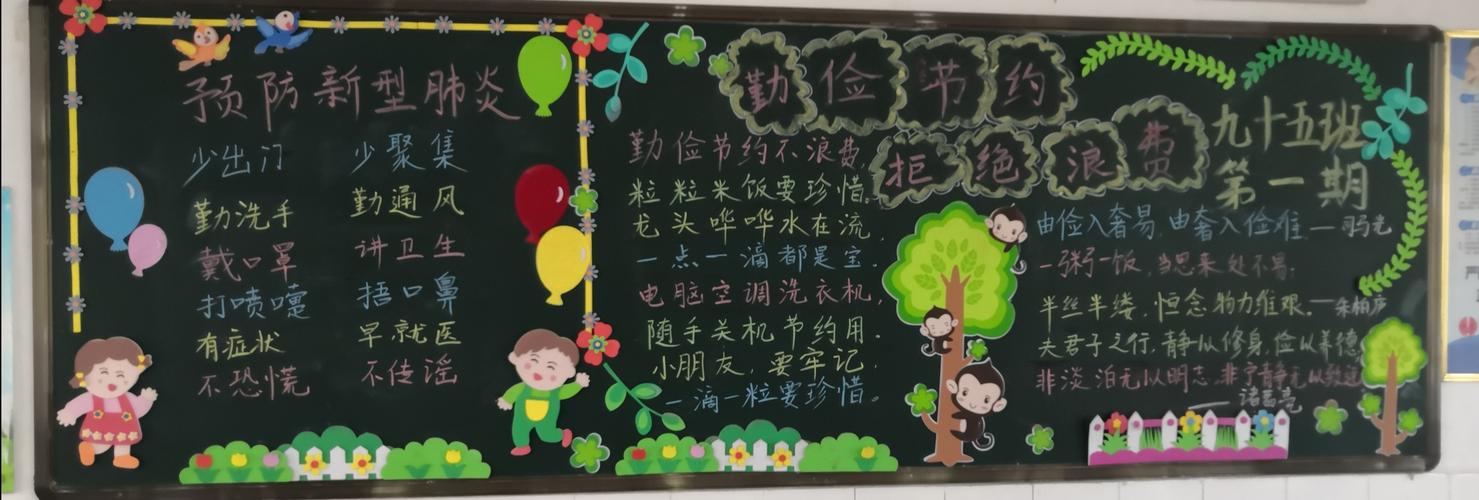 预防新型肺炎
少出门 少聚集
勤洗手 勤通风
戴口罩 讲卫生
打喷嚏 捂口鼻
有症状 早就医
不恐慌 不传谣
勤俭节约
拒绝浪费
九十五班
第一期
勤俭节约不浪费,
粒粒米饭要珍惜。
龙头哗哗水在流,
一点一滴都是宝.
电脑空调洗衣机,
随手关机节约用.
小朋友,要牢记,
一滴一粒要珍惜。
由俭入奢易,由奢入俭难 — 司马光
一粥一饭,当思来处不易.
半丝半缕,恒念物力维艰. — 朱柏庐
夫君子之行,静以修身,俭以养德,
非淡泊无以明志,非宁静无以致远
— 诸葛亮